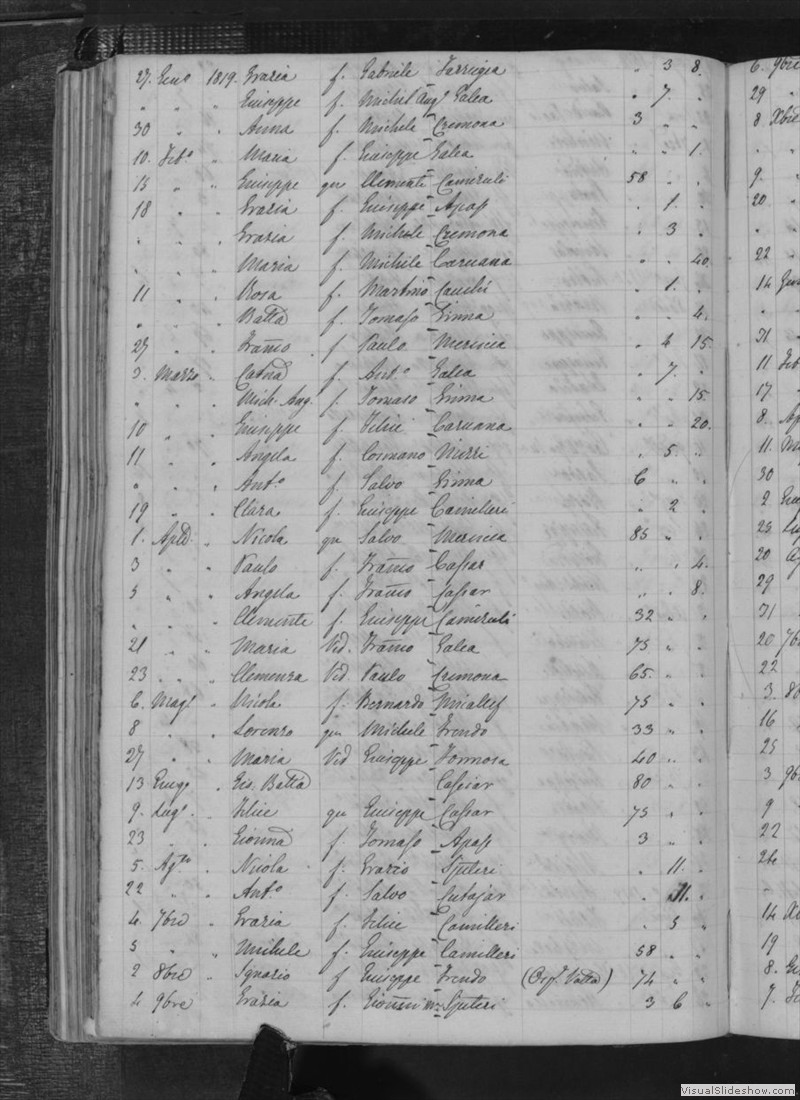 27. Genº 1819. Grazia f. Gabriele Farrugia " 3 8.
" " " Giuseppe f. Michel Angº Galea " 7. "
30 " " Anna f. Michele Cremona 3 " "
10. Febº " Maria f. Giuseppe Galea " " 1.
15 " " Giuseppe qm Clemente Camenzuli 58 " "
18 " " Grazia f. Giuseppe Apap " 1. "
" " " Grazia f. Michele Cremona " 3 "
" " " Maria f. Michele Caruana " " 40.
11 " " Rosa f. Martino Cauchi " 1. "
" " " Batta f. Tomaso Zimma " " 4.
27 " " f. Paulo 4 15.
3. Marzo " f. Antº Galea " 7. "
" " " Mich. Ang. f. Tomaso " " 15.
10 " " Giuseppe f. Felice Caruana " " 20.
11 " " Angela f. Cosmano " 5. "
" " " Antº f. Salvo 6 " "
19 " " Clara f. Giuseppe Camilleri " 2 "
1. " Nicola qm Salvo 85 " "
3 " " Paulo f. Cassar " " 4.
5 " " Angela f. Cassar " " 8.
" " " Clemente f. Giuseppe 32 " "
21 " " Maria Vid. Galea 75 " "
23 " " Clemenza Vid Paulo Cremona 65. " "
6. Magº " Nicola f. Bernardo Micallef 75 " "
8 " " Lorenzo qm Michele Grendo 33 " "
27 " " Maria Vid Giuseppe Formosa 40 " "
13 Giugº " Gio. Batta Cassar 80 " "
9. Lugº " Felice qm Giuseppe Cassar 75 " "
23 " " f. Tomaso Apap 3 " "
5. Agto " Nicola f. Grazio Spiteri " 11. "
22 " " Antº f. Salvo Cutajar " 11. "
4. 7bre " Grazia f. Felice Camilleri " 5 "
5 " " Michele f. Giuseppe Camilleri 58 " "
2 8bre " Ignazio f Giuseppe Grendo 74 " "
4 9bre " Grazia f. Spiteri 3 6 "
6. 9bre
29
8 Xbre
9.
20
22
14
31
11
17
8.
11.
30
2
25
20
29
31
20
22
3.
16
25
3
9
22
26
14
19
8.
7.
VisualSlideshow.com